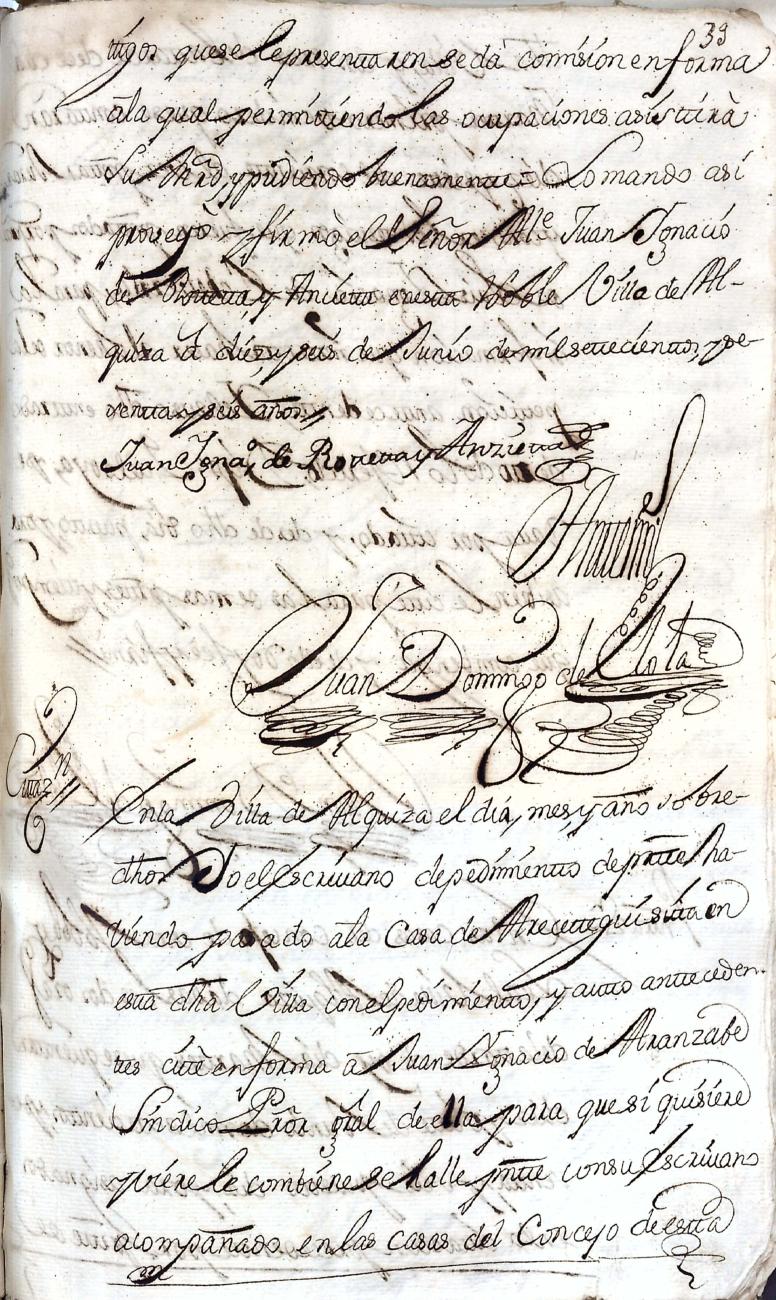 39
tigos que se le presentaren se dà comision en forma
a la qual permitiendo las ocupaciones asistirà
Su Mrd, y pudiendo buenamente = Lo mando asi
proveyò y firmò el Señor Ale Juan Ygnacio
de Rotteta, y Ancieta en esta Noble Villa de Al-
quiza à diez, y seis de Junio de mil settecientos, y se-
tenta y seis años //
Juan Ygna.o de Rotteta y Anzietta
Antemi
Juan Domingo de Olota
Citaz.n //
En la Villa de Alquiza el dia, mes, y año sobre-
dhos Yo el Escrivano de pedimiento de partte ha-
viendo pasado a la Casa de Arecettegui sitta en
esta dha Villa con el pedimiento, y autto anteceden-
tes citè en forma à Juan Ygnacio de Aranzabe
Sindico Pror gral de ella para que si quisiere
y viere le combiene se halle pntte con su Escrivano
acompañado en las casas del Concejo de esta